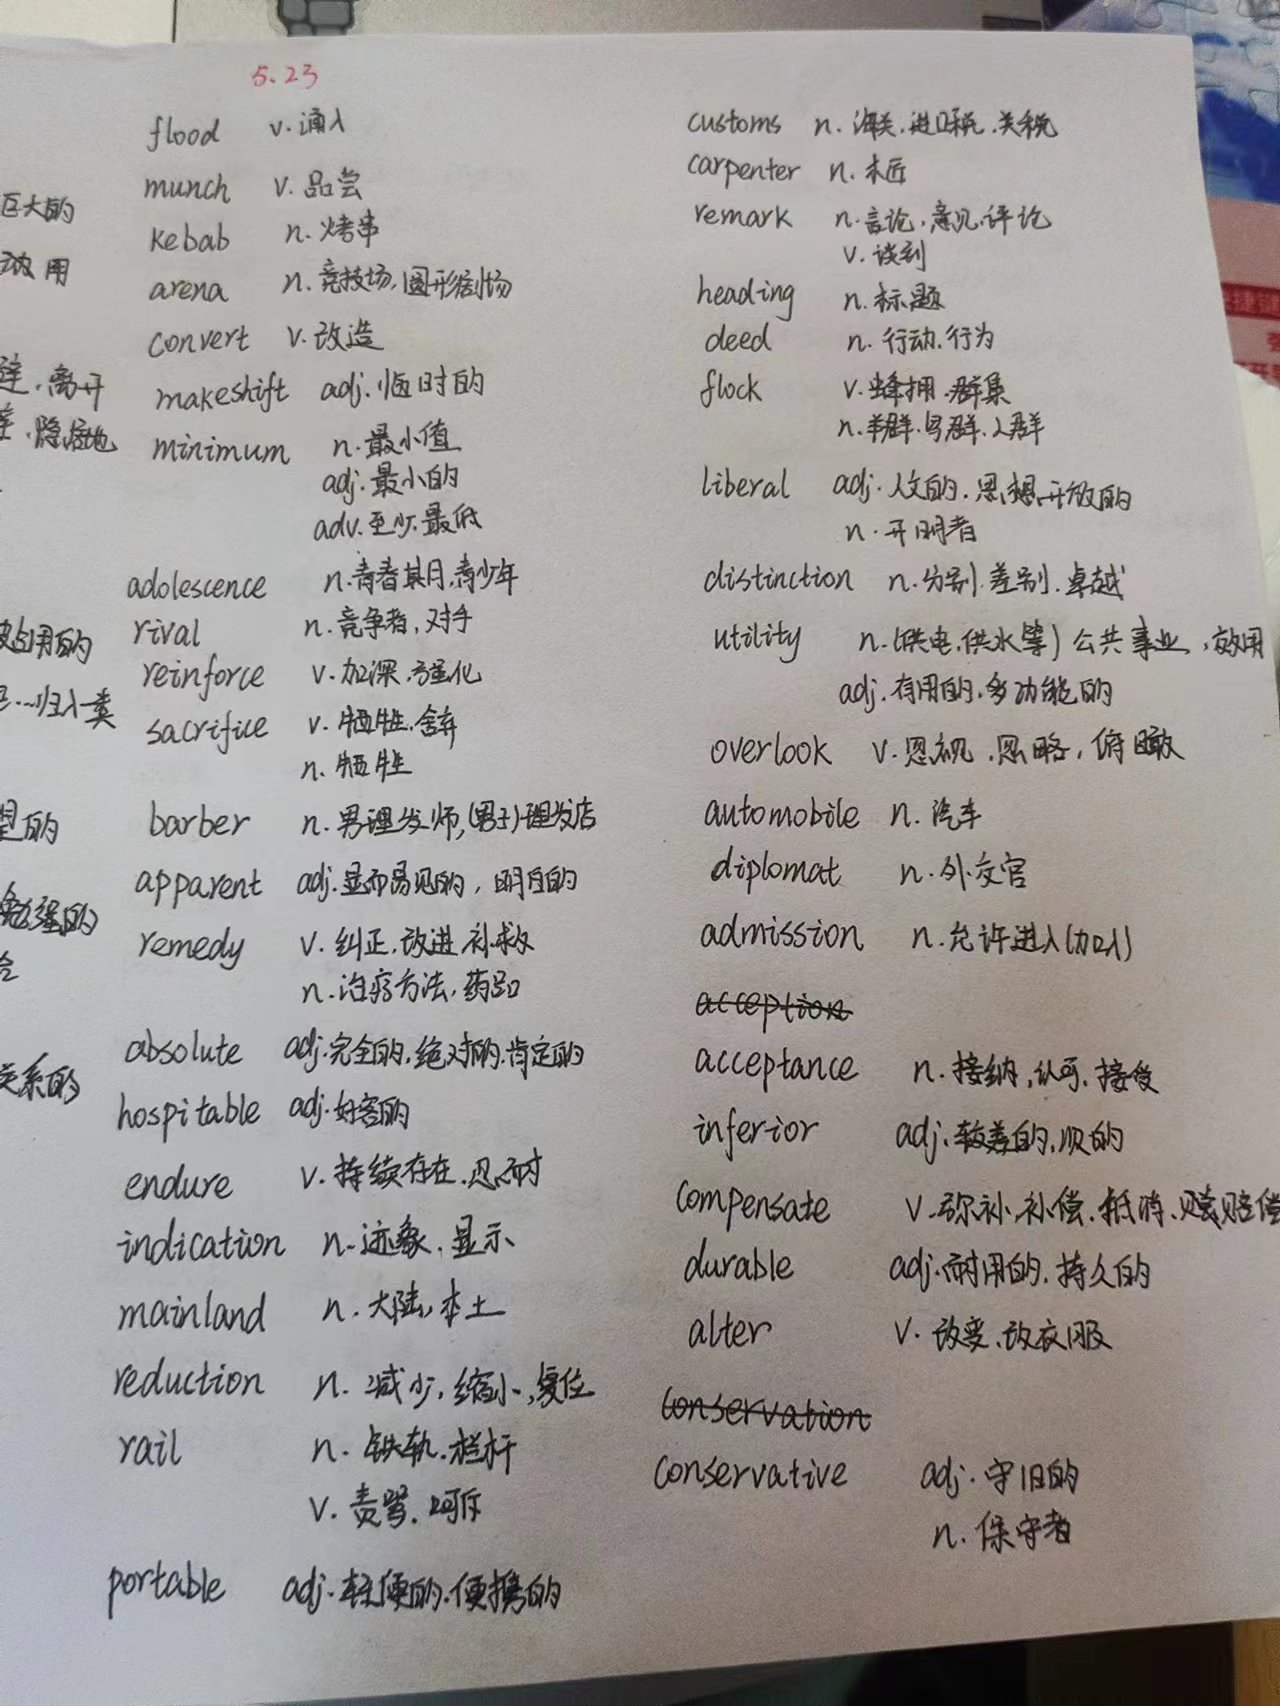 5.23
巨大的
用
离开
隐居地
占用的
归入一类
的
勉强的
关系的
flood v.涌入
munch v.品尝
kebab n.烤串
arena n.竞技场,圆形剧场
convert v.改造
makeshift adj.临时的
minimum n.最小值
adj.最小的
adv.至少.最低
adolescence n.青春期,青少年
rival n.竞争者,对手
reinforce v.加深.强化
sacrifice v.牺牲.舍弃
n.牺牲
barber n.男理发师,(男子)理发店
apparent adj.显而易见的,明白的
remedy v.纠正.改进.补救
n.治疗方法,药品
absolute adj.完全的.绝对的.肯定的
hospitable adj.好客的
endure v.持续存在.忍耐
indication n.迹象.显示
mainland n.大陆,本土
reduction n.减少,缩小,复位
rail n.铁轨.栏杆
v.责骂.呵斥
portable adj.轻便的.便携的
customs n.海关.进口税.关税
carpenter n.木匠
remark n.言论,意见.评论
v.谈到
heading n.标题
deed n.行动.行为
flock v.蜂拥.群集
n.羊群.鸟群.人群
liberal adj.人文的.思想开放的
n.开明者
distinction n.分别.差别.卓越
utility n.(供电.供水等)公共事业,效用
adj.有用的,多功能的
overlook v.忽视.忽略,俯瞰
automobile n.汽车
diplomat n.外交官
admission n.允许进入(加入)
acception
acceptance n.接纳,认可.接受
inferior adj.较差的,次的
compensate v.弥补,补偿.抵消.赔偿
durable adj.耐用的.持久的
alter v.改变,改衣服
conservation
conservative adj.守旧的
n.保守者